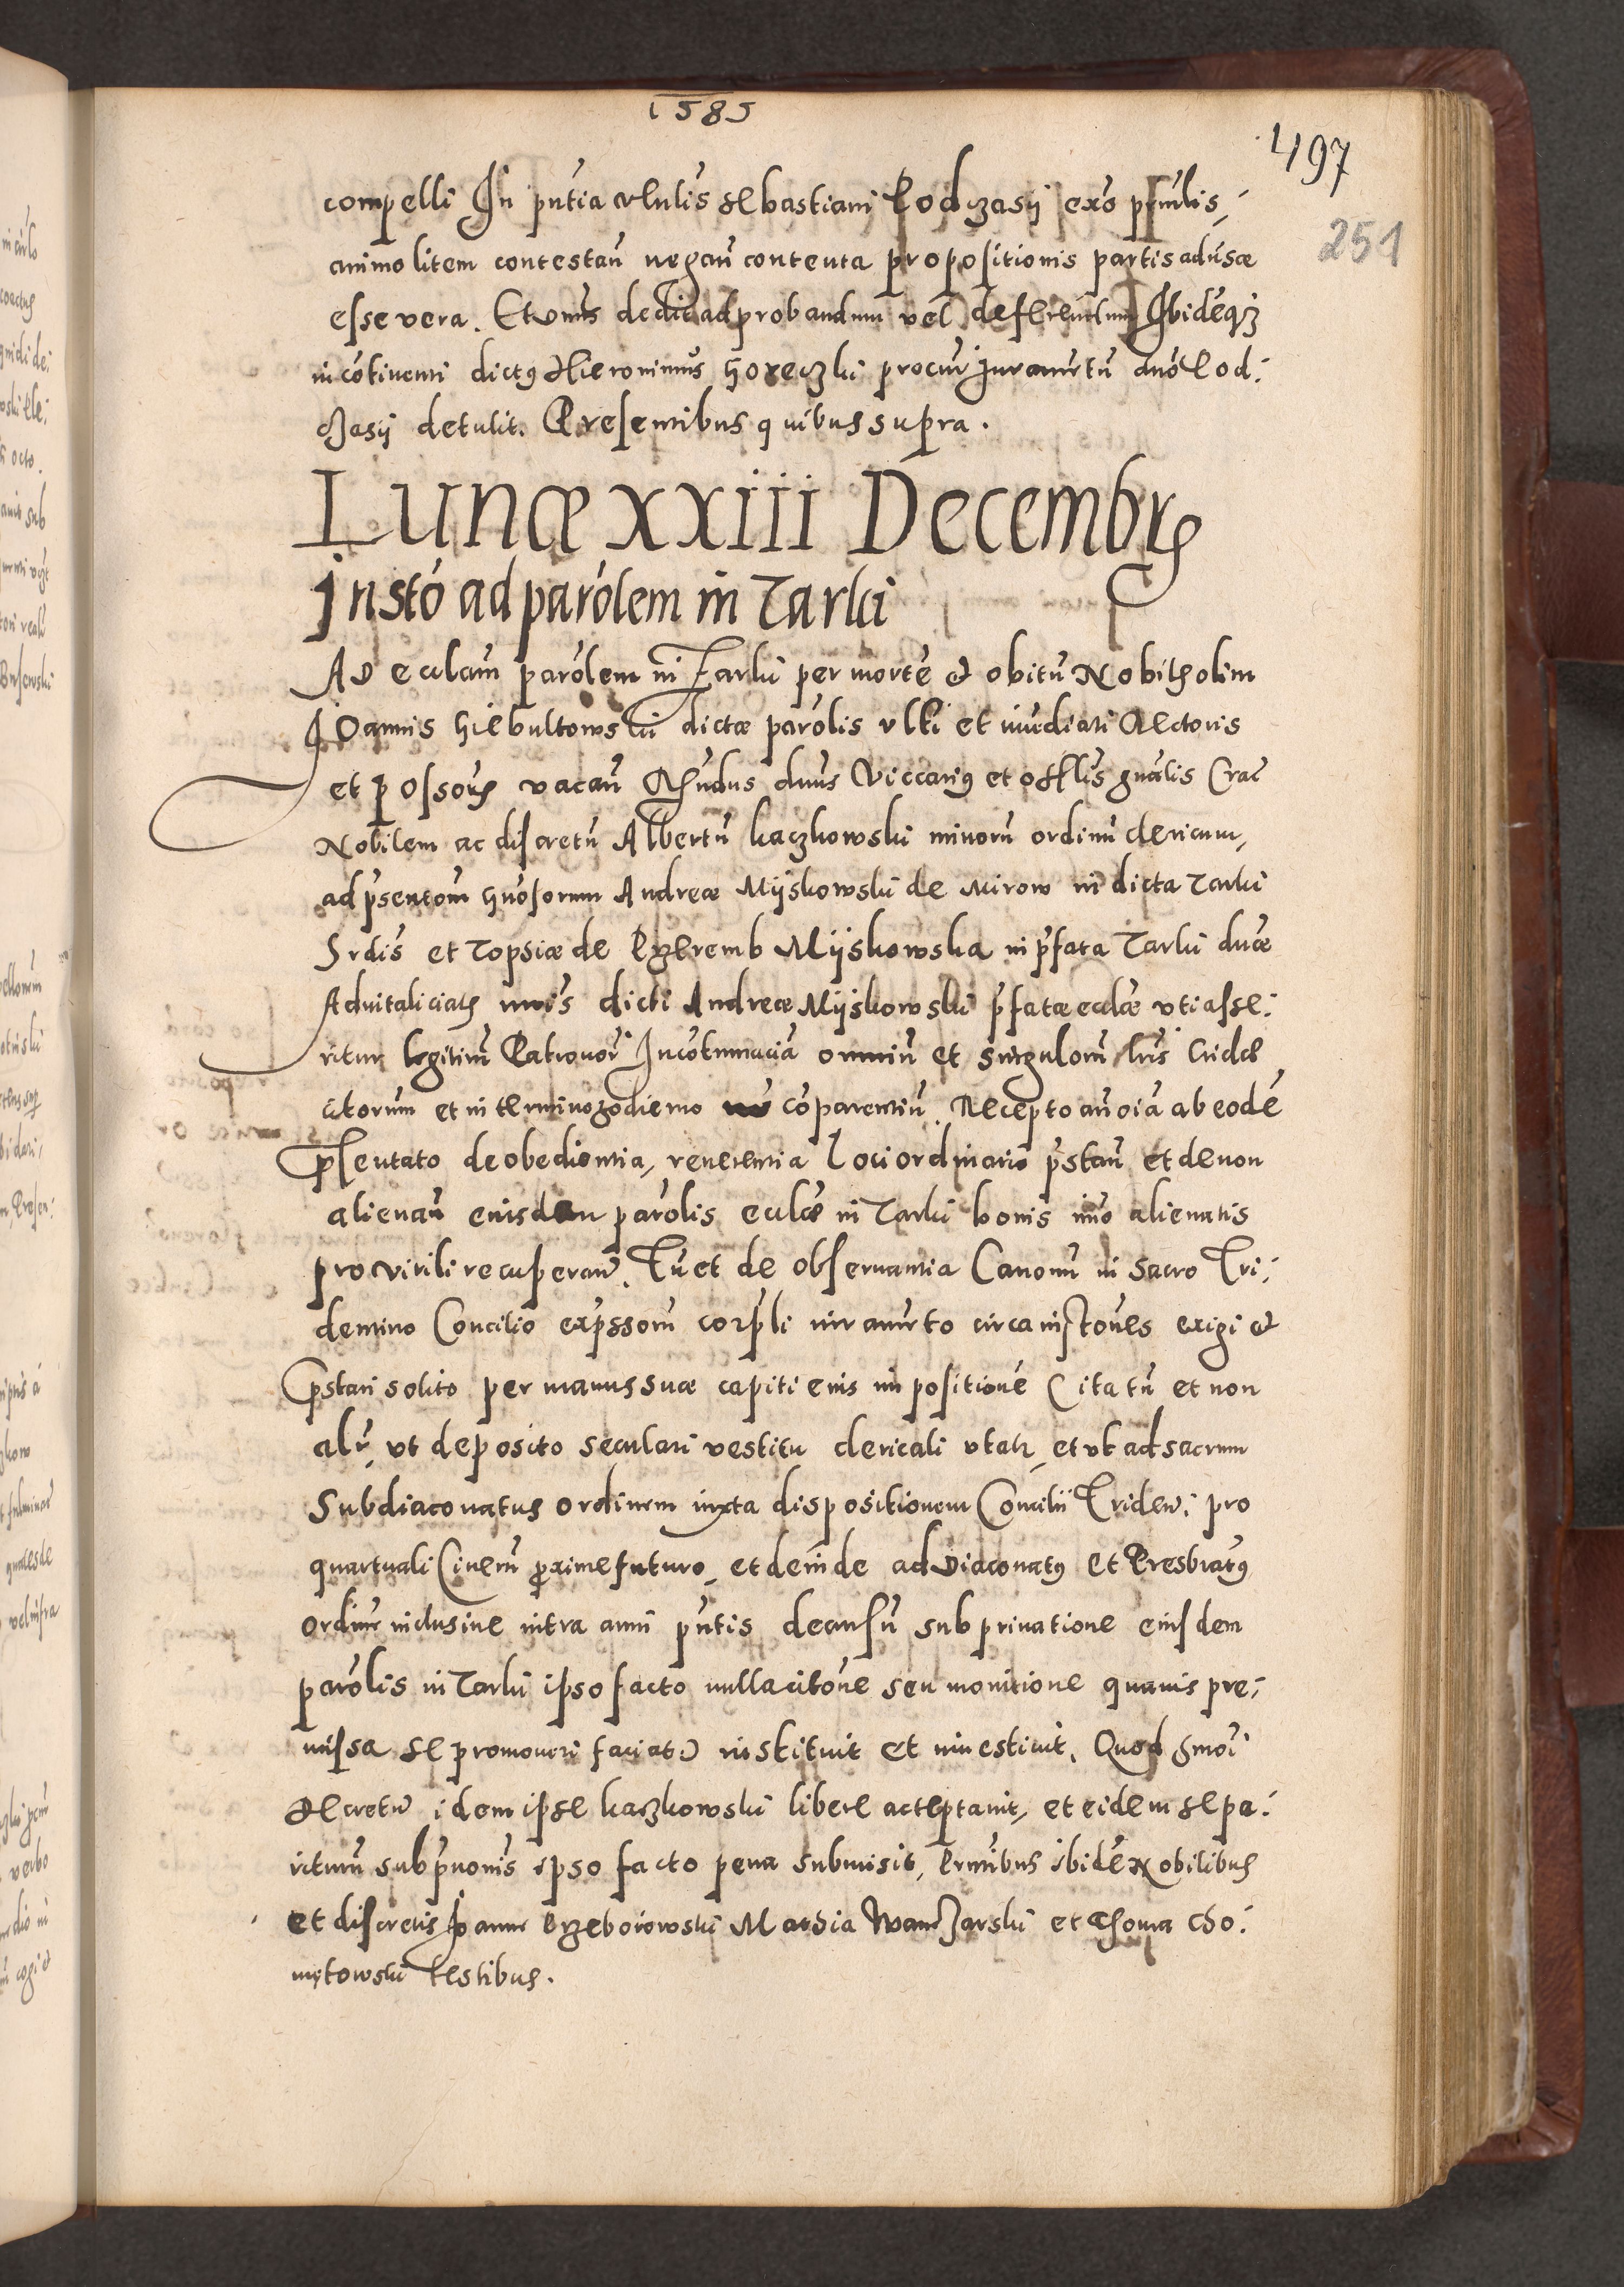 1585
497
251
compelli In pñtia vñlis Sebastiani Podczasij exo pñulis,
animo litem contestañ negañ contenta propositionis partis adũsæ
esse vera. Et dedit ad probandum vel deferendum Ibidéqȝ
incótinenti dictꝰ Hieronimus Goreczki procur̃ juramẽtũ dnõ Pod:
czasij detulit. Presentibus quibus supra.
Lunæ XXIII Decembrꝭ
Insto ad parolem in Tarlci
AD ecclam̃ parólem in Tarki per mortẽ & obitũ Nobilꝭ olim
IOannis Giebultowskii dictæ parólis vltĩ et imediati Rectoris
et possorꝭ vacañ Rñdus dnus Viccariꝰ et offlis gnãlis Crac̃
Nobilem ac discretũ Albertũ kaczkowski minorũ ordinũ clericum,
ad p̃sentom̃ Gnõsorum Andreæ Mijskowski de Mirow in dicta Tarki
Hrdis et Topsiæ de Przeremb Mijskowska in p̃fata Tarki dnæ
Aduitaliciatꝭ dicti Andreæ Mijskowski p̃fatæ ecclæ vti asse:
ritur legitim̃ Patronor̃ In cótumaciã omniũ et singulorũ hũs
citorum et in termino hodierno cóparentiũ. Recepto añ oĩa ab eodé
Psentato de obedientia, reuerentia Loci ordinario p̃stañ et de non
alienañ eiusdem parólis ecclæ in Tarki bonis imó alienatis
pro virili recuperañ. Tũ et de obseruantia Canonũ in Sacro Tri:
dentino Concilio exp̃ssorũ corp̃li iuramẽto circa instónes exigi &
Pstari solito per manus suæ capiti eius impositionẽ Citatũ et non
alr̃, vt deposito seculari vestitu clericali vtatꝛ, et vt ad sacrum
Subdiaconatus ordinem iuxta dispositionem Concilii Triden: pro
quartuali Cinerũ proxime futuro, et deinde ad Diaconatꝰ et Presbratꝰ
ordine inclusiue intra anni p̃ntis decursũ sub priuatione eiusdem
parólis in Tarki ipso facto nulla citóne seu monitione quauis pre:
missa se promoueri faciat instituit et inuestiuit. Quod hmõi
Decretũ idem ipse kaczkowski libere acceptauit, et eidem se pa:
riturũ sub p̃uonis ipso facto pena submisit, Pñtibus ibidẽ Nobilibus
et discretis Ioanne Przeboiowski Mathia Wanczarski et Thoma Cho:
mętowski testibus.